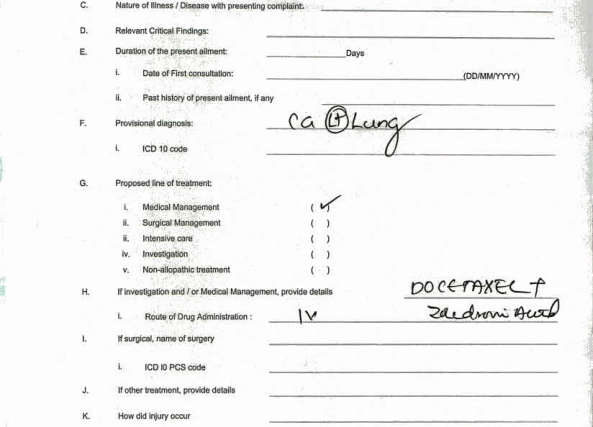 C. Nature of Illness / Disease with presenting complaint:
D. Relevant Critical Findings:
E. Duration of the present ailment: Days
i. Date of First consultation: (DD/MM/YYYY)
ii. Past history of present ailment, if any
F. Provisional diagnosis: Ca Lt Lung
i. ICD 10 code
G. Proposed line of treatment:
i. Medical Management ( ✓ )
ii. Surgical Management ( )
ii. Intensive care ( )
iv. Investigation ( )
v. Non-allopathic treatment ( )
H. If investigation and / or Medical Management, provide details DOCETAXEL +
i. Route of Drug Administration : IV
I. If surgical, name of surgery
i. ICD I0 PCS code
J. If other treatment, provide details
K. How did injury occur